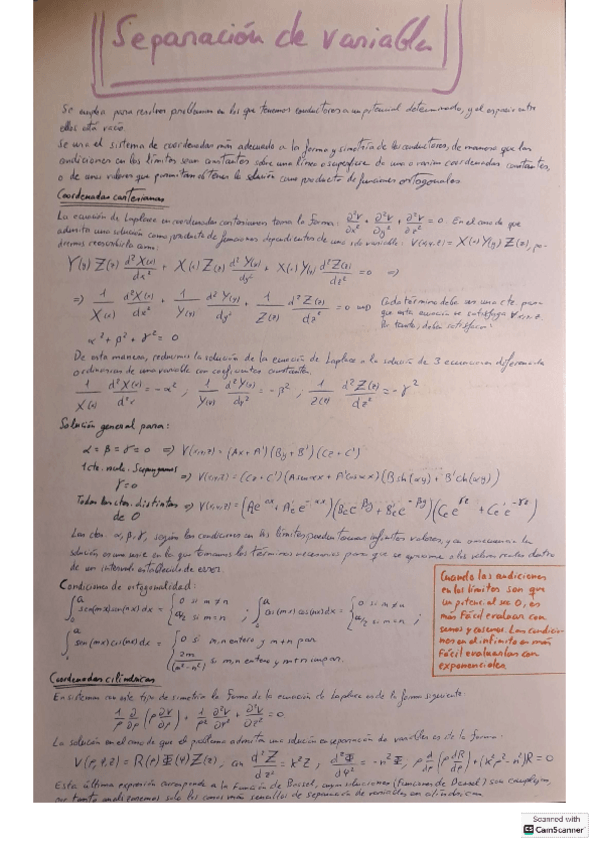 Separación de variables
Se emplea para resolver problemas en los que tenemos conductores a un potencial determinado, y el espacio entre
ellos está vacío.
Se usa el sistema de coordenadas más adecuado a la forma y simetría de los conductores, de manera que las
condiciones en los límites sean constantes sobre una línea o superficie de una o varias coordenadas constantes,
o de unos valores que permitan obtener la solución como producto de funciones ortogonales
Coordenadas cartesianas
La ecuación de Laplace en coordenadas cartesianas toma la forma: ∂²V/∂x² + ∂²V/∂y² + ∂²V/∂z² = 0. En el caso de que
admita una solución como producto de funciones dependientes de una sola variable: V(x,y,z) = X(x) Y(y) Z(z), po-
dremos reescribirla como:
Y(y) Z(z) d²X(x)/dx² + X(x) Z(z) d²Y(y)/dy² + X(x) Y(y) d²Z(z)/dz² = 0 ⇒
⇒ 1/X(x) d²X(x)/dx² + 1/Y(y) d²Y(y)/dy² + 1/Z(z) d²Z(z)/dz² = 0 ⇒ Cada término debe ser una cte. para
que esta ecuación se satisfaga ∀x,y,z.
Por tanto, deben satisfacer:
α² + β² + γ² = 0
De esta manera, reducimos la solución de la ecuación de Laplace a la solución de 3 ecuaciones diferenciales
ordinarias de una variable con coeficientes constantes.
1/X(x) d²X(x)/d²x = -α² ; 1/Y(y) d²Y(y)/dy² = -β² ; 1/Z(z) d²Z(z)/dz² = -γ²
Solución general para:
α = β = γ = 0 ⇒ V(x,y,z) = (Ax + A')(By + B')(Cz + C')
1 cte. nula. Supongamos
γ = 0 ⇒ V(x,y,z) = (Cz + C')(A sen αx + A' cos αx)(B sh(αy) + B' ch(αy))
Todas las ctes. distintas
de 0 ⇒
Las ctes. α, β, γ, según las condiciones en los límites pueden tomar infinitos valores, y en consecuencia la
solución es una serie en la que tomamos los términos necesarios para que se aproxime a los valores reales dentro
de un intervalo establecido de error.
Condiciones de ortogonalidad:
∫₀ᵃ sen(mx) sen(nx) dx = { 0 si m ≠ n ; a/2 si m = n ; ∫₀ᵃ cos(mx) cos(nx) dx = { 0 si m ≠ n ; a/2 si m = n ;
∫₀ᵃ sen(mx) cos(nx) dx = { 0 si m,n entero y m+n par ; 2m/(m²-n²) si m,n entero y m+n impar.
Cuando las condiciones
en los límites son que
un potencial sea 0, es
más fácil evaluar con
senos y cosenos. Las condicio-
nes en el infinito es más
fácil evaluarlas con
exponenciales
Coordenadas cilíndricas
En sistemas con este tipo de simetría la forma de la ecuación de Laplace es de la forma siguiente:
1/ρ ∂/∂ρ (ρ ∂V/∂ρ) + 1/ρ² ∂²V/∂φ² + ∂²V/∂z² = 0
La solución en el caso de que el problema admita una solución en separación de variables es de la forma:
V(ρ,φ,z) = R(ρ) Φ(φ) Z(z), con d²Z/dz² = k²Z ; d²Φ/dφ² = -n²Φ ; ρ d/dρ (ρ dR/dρ) + (k²ρ² - n²)R = 0
Esta última expresión corresponde a la función de Bessel, cuyas soluciones (funciones de Bessel) son complejas,
por tanto analizaremos solo los casos más sencillos de separación de variables en cilíndricas
Scanned with
CamScanner